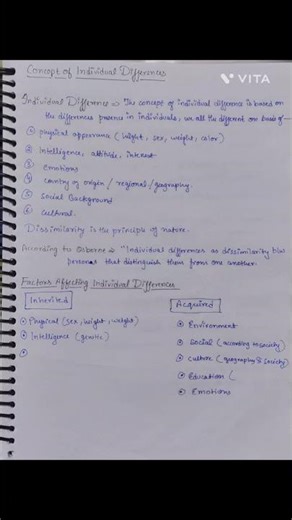 VITA
Concept of Individual Differences
Individual Difference → The concept of individual difference is based on
the differences presence in individuals, we all the different one basis of —
① Physical apperrums (height, sex, weight, color)
② Intelligence, attitude, interest
③ Emotions
④ country of origin / regional / geography.
⑤ Social Background
⑥ Cultural.
Dissimilarity is the principle of nature.
According to Osborne → "Individual differences as dissimilarity b/w
persons that distinguish them from one another.
Factors Affecting Individual Differences
Inherited
Physical (sex, height, weight)
Intelligence (genetic)
Acquired
Environment
Social (according to society)
Culture (geography & society)
Education (
Emotions